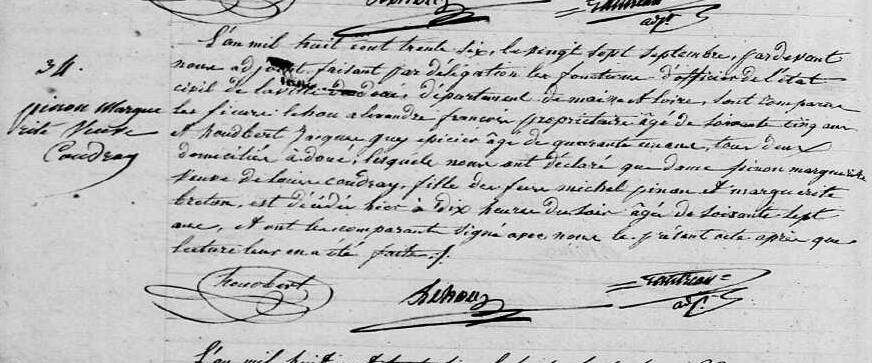 adjt.
34.
pinon Margue
rite Veuve
Coudray
L'an mil huit cent trente six, le vingt sept septembre, pardevant
nous adjoint faisant par délégation les fonctions d'officier de l'état
civil de la ville de doué, département de maine et loire, sont comparus
les sieurs lehou alexandre françois propriétaire âgé de soixante cinq ans
et houdbert Jacques guy épicier âgé de quarante un ans, tous deux
domiciliés à doué, lesquels nous ont déclaré que dame pinon marguerite
Veuve de louis coudray, fille des feux michel pinon et marguerite
breton, est décédée hier à dix heures du soir âgée de soixante sept
ans, et ont les comparant signé avec nous le présent acte après que
lecture leur en a été faite ./.
houdbert
Lehou
adjt.
L'an mil huit